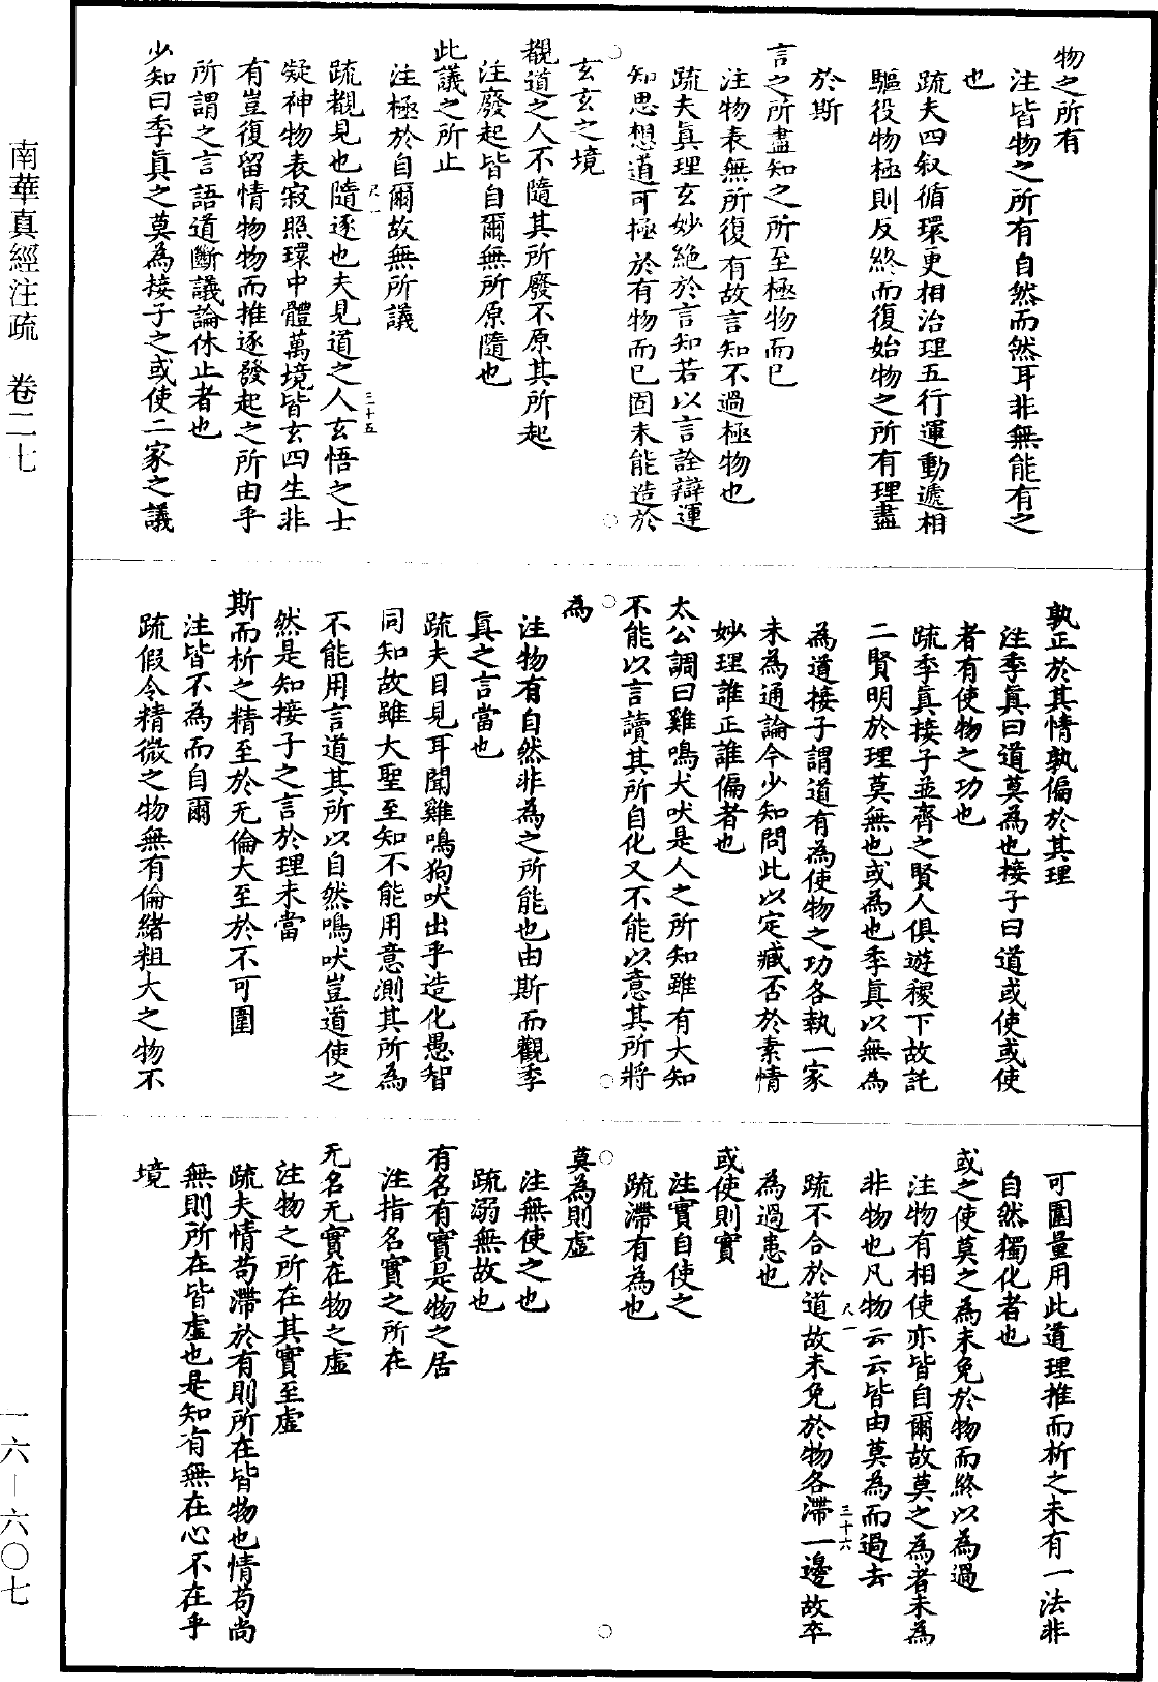 物之所有
注皆物之所有自然而然耳非無能有之
也
疏夫四叙循環更相治理五行運動遞相
驅役物極則反終而復始物之所有理盡
於斯
言之所盡知之所至極物而已
注物表無所復有故言知不過極物也
疏夫眞理玄妙絶於言知若以言詮辯運
知思想道可極於有物而已固未能造於
玄玄之境
覩道之人不隨其所廢不原其所起
注廢起皆自爾無所原隨也
此議之所止
注極於自爾故無所議
尺一
三十五
疏覩見也隨逐也夫見道之人玄悟之士
凝神物表寂照環中體萬境皆玄四生非
有豈復留情物物而推逐發起之所由乎
所謂之言語道斷議論休止者也
少知曰季眞之莫為接子之或使二家之議
孰正於其情孰偏於其理
注季眞曰道莫為也接子曰道或使或使
者有使物之功也
疏季眞接子並齊之賢人俱遊稷下故託
二賢明於理莫無也或為也季眞以無為
為道接子謂道有為使物之功各執一家
未為通論今少知問此以定臧否於素情
妙理誰正誰偏者也
太公調曰雞鳴犬吠是人之所知雖有大知
不能以言讀其所自化又不能以意其所將
為
注物有自然非為之所能也由斯而觀季
眞之言當也
疏夫目見耳聞雞鳴狗吠出乎造化愚智
同知故雖大聖至知不能用意測其所為
不能用言道其所以自然鳴吠豈道使之
然是知接子之言於理未當
斯而析之精至於无倫大至於不可圍
注皆不為而自爾
疏假令精微之物無有倫緒粗大之物不
可圍量用此道理推而析之未有一法非
自然獨化者也
或之使莫之為未免於物而終以為過
注物有相使亦皆自爾故莫之為者未為
非物也凡物云云皆由莫為而過去
尺一
三十六
疏不合於道故未免於物各滯一邊故卒
為過患也
或使則實
注實自使之
疏滯有為也
莫為則虛
注無使之也
疏溺無故也
有名有實是物之居
注指名實之所在
无名无實在物之虛
注物之所在其實至虛
疏夫情苟滯於有則所在皆物也情苟尚
無則所在皆虛也是知有無在心不在乎
境
南華真經注疏　卷二七
一六—六〇七